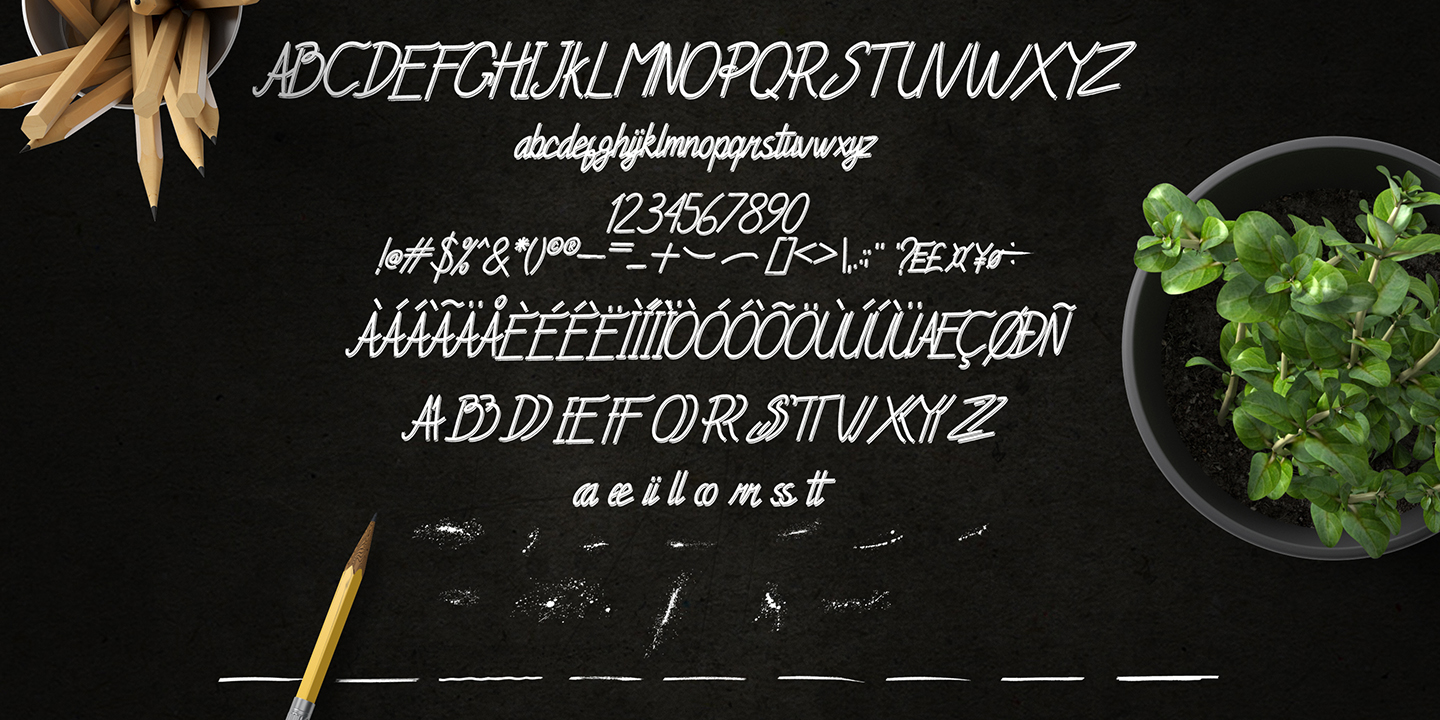 ABCDEFGHIJKLMNOPQRSTUVWXYZ
abcdefghijklmnopqrstuvwxyz
1234567890
!@#$%^&*()©®—=_+[]<>|,.:;"“?Æ£¤¥ø÷
ÀÁÂÃÄÅÈÉÊËÌÍÎÏÒÓÔÕÖÙÚÛÜÆÇØÐÑ
AA BB DD EE FF OO RR SS TT VV XX YY ZZ
aa ee ii ll oo rr ss tt